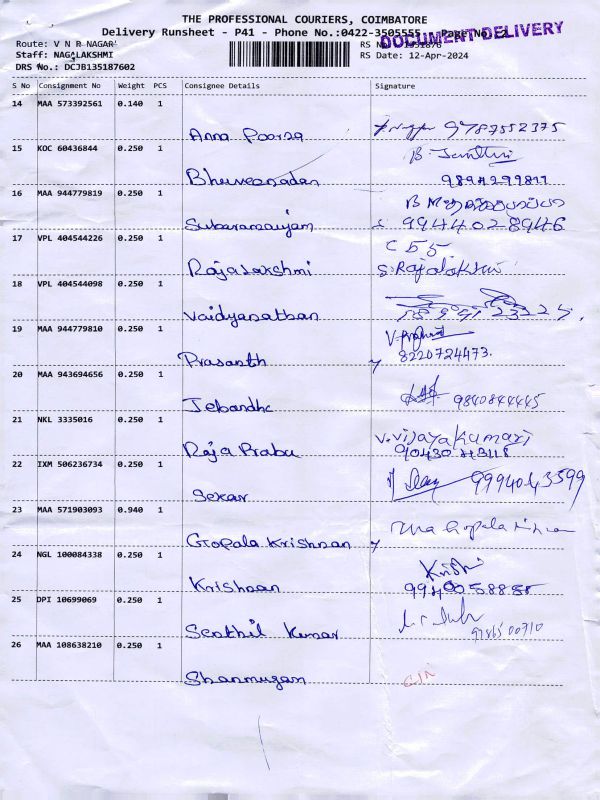 THE PROFESSIONAL COURIERS, COIMBATORE
Delivery Runsheet - P41 - Phone No.:0422-3505555 Page No.
DOCUMENT DELIVERY
Route: V N R NAGAR
Staff: NAGALAKSHMI
RS Date: 12-Apr-2024
DRS No.: DCJB135187602
S No Consignment No Weight PCS Consignee Details Signature
14 MAA 573392561 0.140 1
Anna Poorza 9787552375
15 KOC 60436844 0.250 1
B.
Bhuvaneandan
16 MAA 944779819 0.250 1
Subaramaiyam 9944028946
17 VPL 404544226 0.250 1
C 55
Rajalakshmi S. Rajalakshmi
18 VPL 404544098 0.250 1
Vaidyanathan
19 MAA 944779810 0.250 1
Prasanth 8220724473.
20 MAA 943694656 0.250 1
Jebandhc 9840844445
21 NKL 3335016 0.250 1
V. Vijayakumari
Raja Prabu 90430 43118
22 IXM 506236734 0.250 1
Sekar 9994043599
23 MAA 571903093 0.940 1
Gopala Krishnan
24 NGL 100084338 0.250 1
Krishnan 9940058885
25 DPI 10699069 0.250 1
Senthil Kumar
26 MAA 108638210 0.250 1
Shanmugam